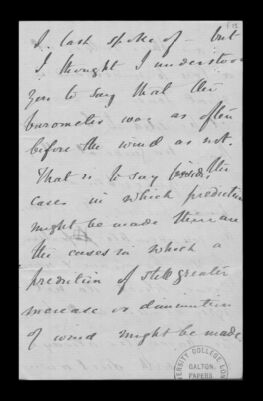 I last spoke of – but
I thought I understood
you to say that the
barometer was as often
before the wind as not.
That is to say besides the
cases in which prediction
might be made there are
the cases in which a
prediction of still greater
increase or diminution
of wind might be made
VERSITY COLLEGE LON
GALTON
PAPERS